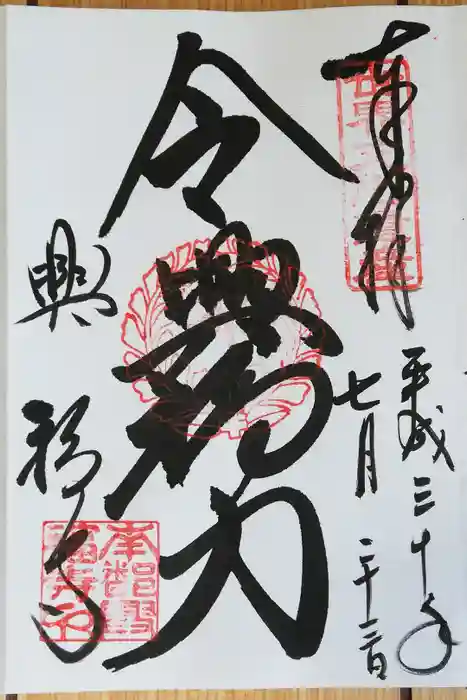 奉拝
平成三十年
七月二十三日
令興福力
興福寺
南都興
福寺印